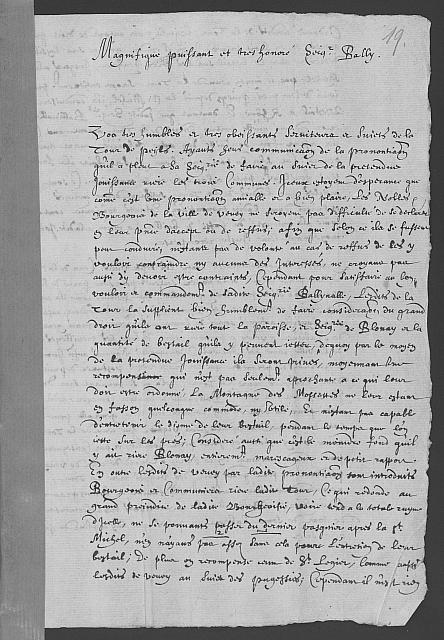 19.
Magnifique puissant et tres honore Seigr. Bally.
Vos tres humbles et tres obeissants serviteurs et suiets de la
Tour de peylz. Ayants heu communication de la prononciation
qu'il a pleu a sa Seigrie de faire au suiet de la pretendue
Jouissance riere les trois Communs. Iceux estoyent d'esperance que
comme c'est une prononciation amiable et a bien plaire, Les Nobles
Bourgeois de la ville de vevey ne feroyent pas difficulte de se declarer
en leur part d'accept ou de reffus, afin que selon ce ils se fussent
peu conduire, n'estants pas de volonte au cas de reffus de les y
vouloir contraindre ny aucuns des Interesses, ne croyans pas
aussi d'y devoir estre contraints, Cependant pour satisfaire au bon
vouloir et commandement de ladite Seigrie Ballivalle, Lesdits de la
Tour la suplient bien humblemt. de faire consideration du grand
droit qu'ils ont riere tout la paroisse, et Seigrie de Blonay et la
quantité de bestail qu'ils y peuvent ietter, dequoy par le moyen
de la pretendue Jouissance ils seront prives, moyennant une
recompense qui n'est pas seulemt. approchante a ce qui leur
doit estre ordonné. La Montagne des Mossettes ne leur estant
en fasson quelconque commode, ny utile, Et n'estant pas capable
d'entretenir le disme de leur bestail, pendant le temps que lon
iette sur les pres; Consideré aussi que c'est le moindre fond quil
y ait riere Blonay, entieremt. marescageux et de petit rapport
En outre lesdits de vevey par ladite prononciation sont introduits
Bourgeois et Communiers riere ladite Tour, Ce qui redonde au
grand preiudice de ladite Bourgeoisie, voire tend a la total ruyne
d'icelle, ne se pouvants passer du dernier pasquier apres la St.
Michel, n'en n'ayans pas assez sans cela pour l'entretien de leur
bestail; De plus en recompense ceux de St. Legier, Comme aussi
lesdits de vevey au suiet des pugessies; Cependant il n'est rien